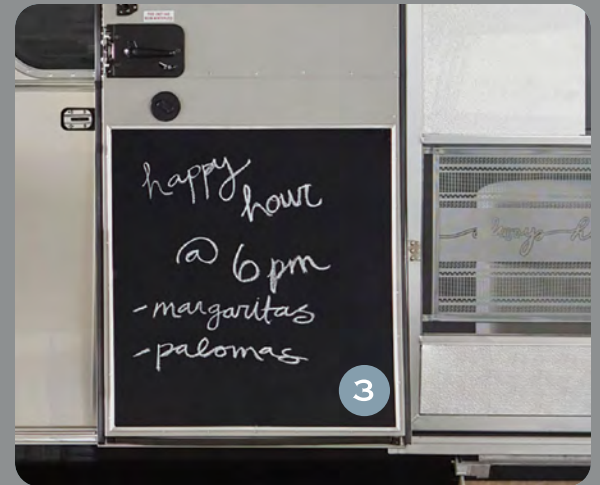 happy
hour
@ 6 pm
-margaritas
-palomas
3